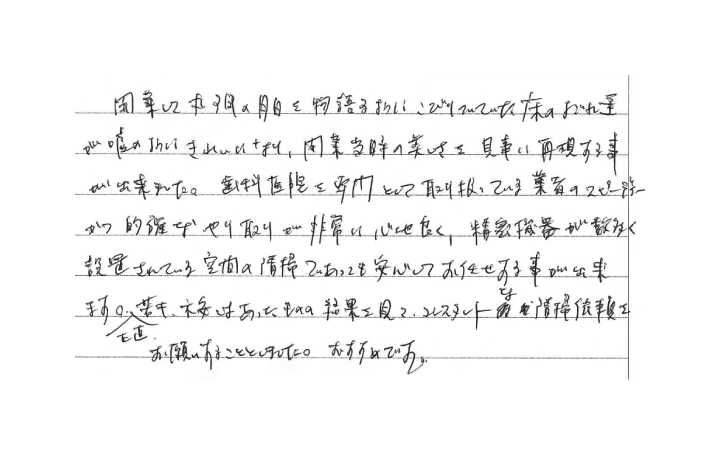 開業して木々の月日を物語るようにこびりついていた床のよごれ達
が嘘のようにきれいになり、開業当時の美しさを見事に再現する事
が出来ました。歯科医院を専門として取り扱っている業者のスピーディー
かつ的確なやり取りが非常に心地良く、精密機器が数多く
設置されている空間の清掃であっても安心してお任せする事が出来
ます。正直、若干、不安はあったものの結果を見て、コンスタントな清掃依頼を
お願いすることとしました。おすすめです。